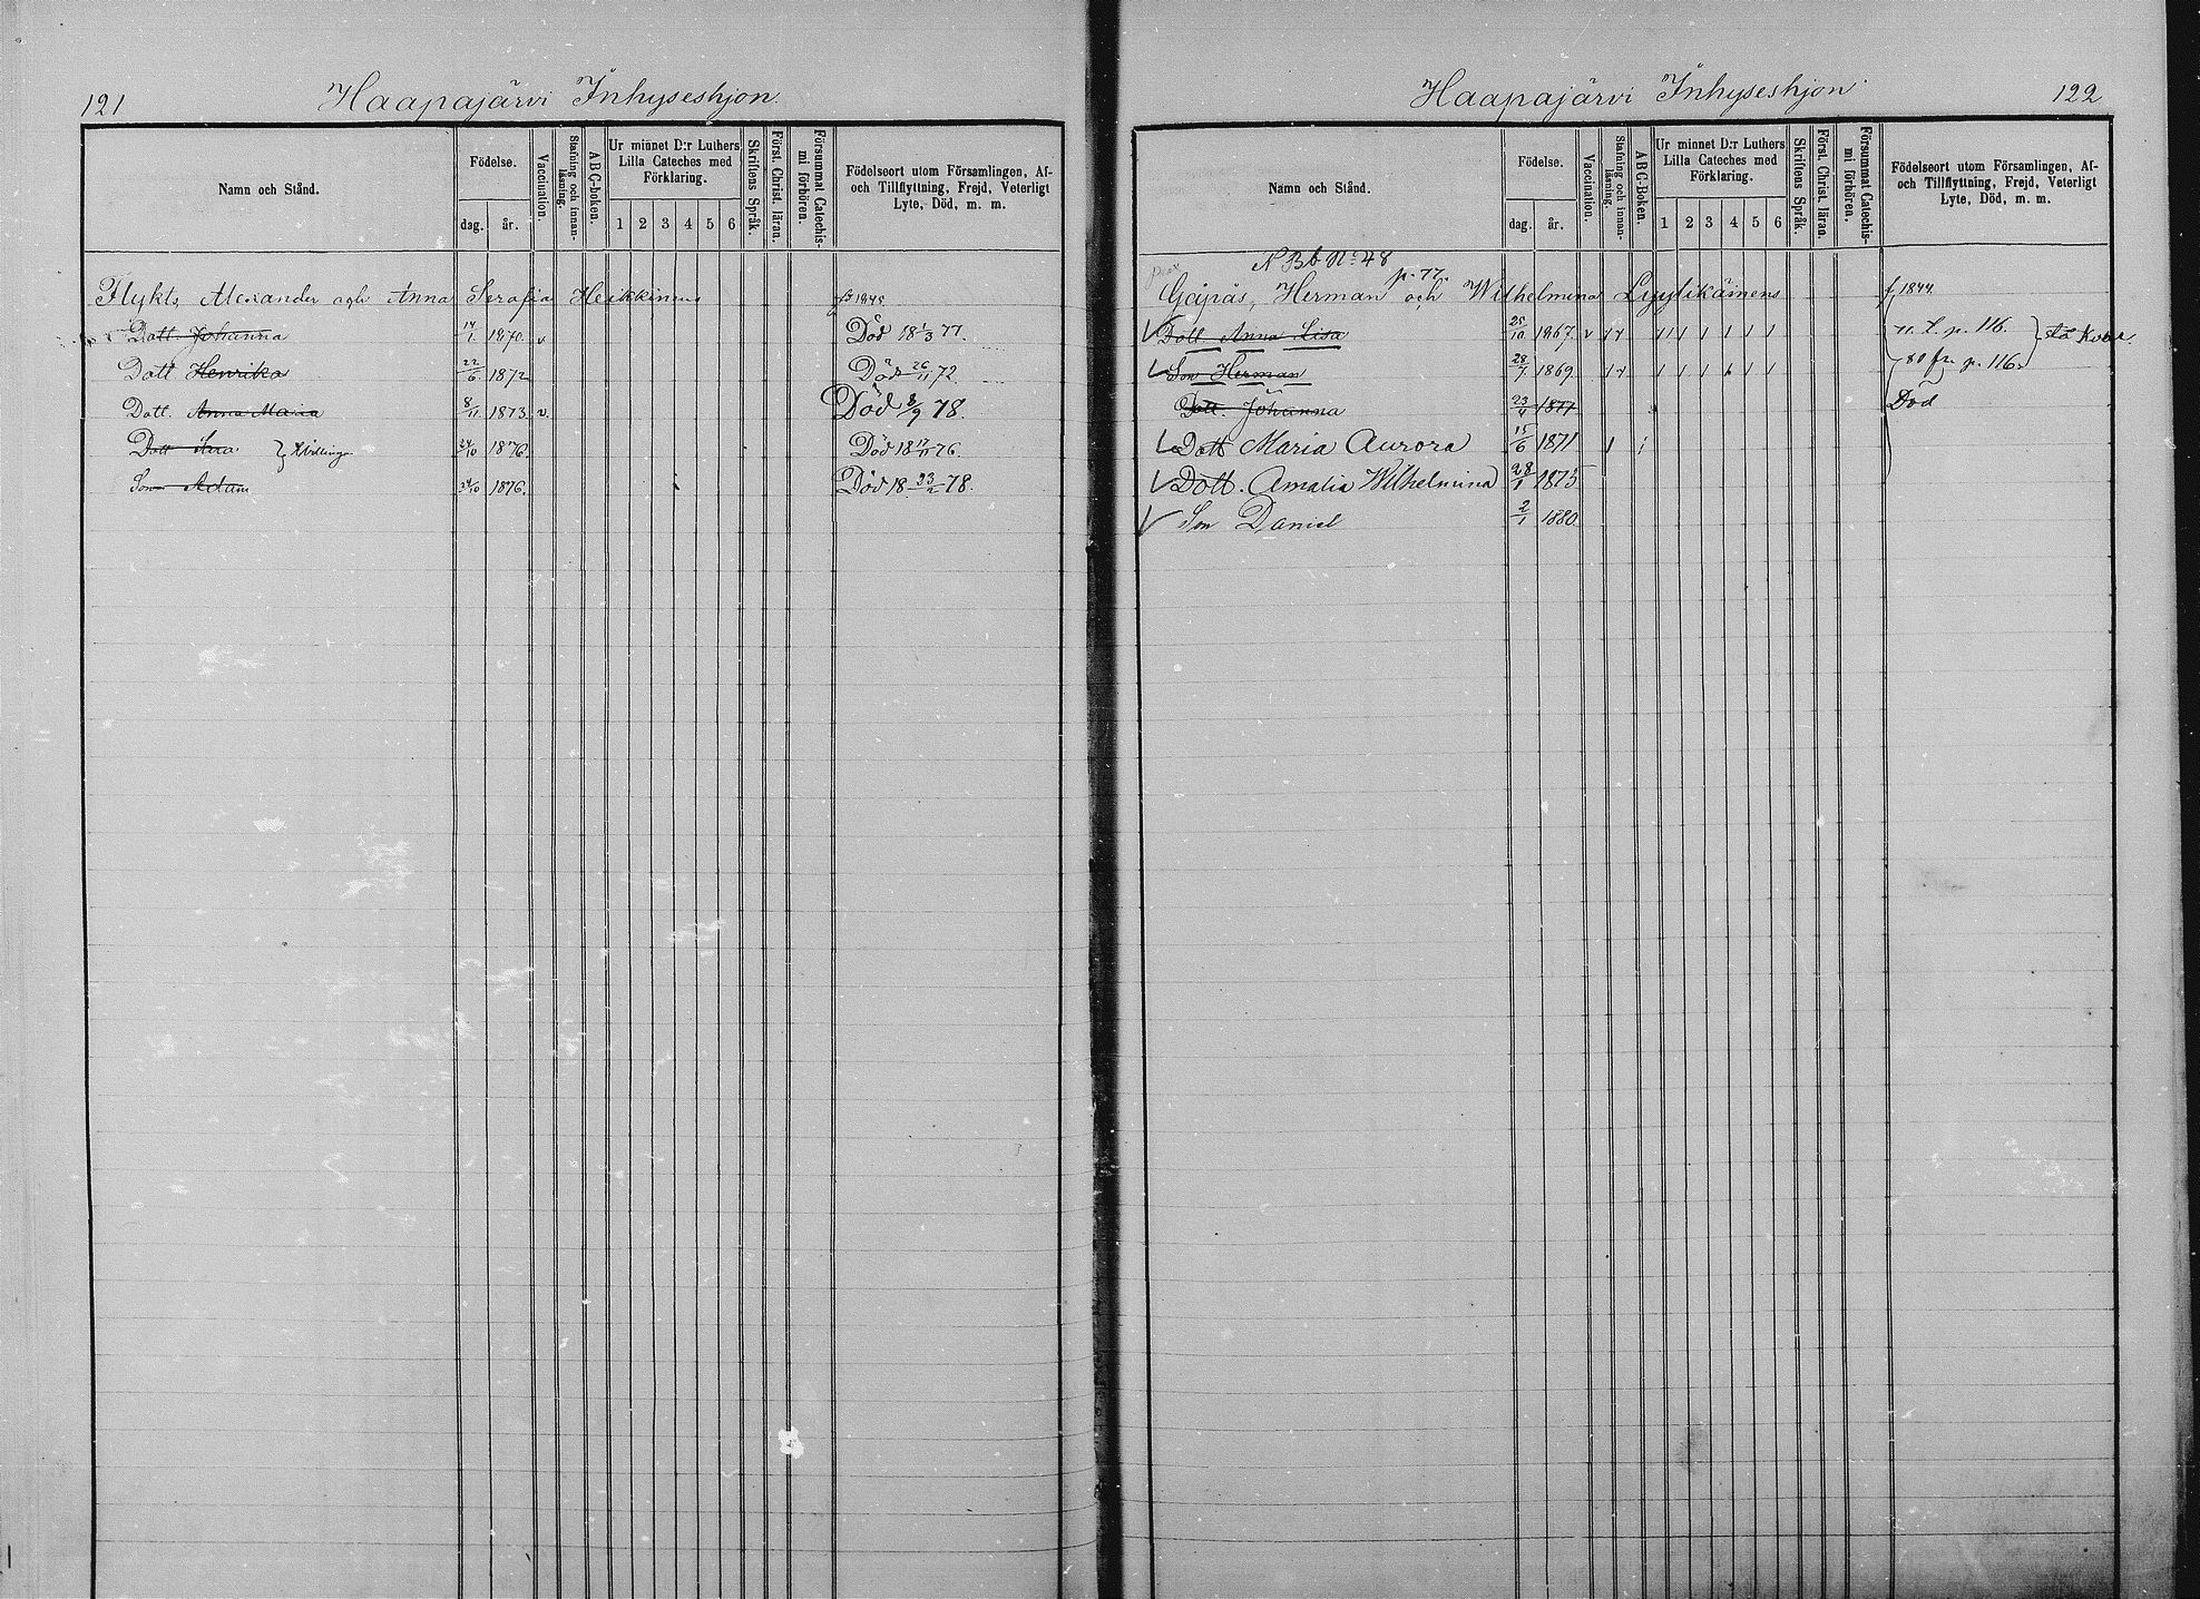 121
Haapajärvi Inhyseshjon.
Namn och Stånd.
Födelse.
dag.
år.
Vaccination.
Stafning och innan-läsning.
ABC-boken.
Ur minnet D:r Luthers
Lilla Cateches med
Förklaring.
1 2 3 4 5 6
Skriftens Språk.
Först. Christ. läran.
Försummat Catechis-
mi förhören.
Födelseort utom Församlingen, Af-
och Tillflyttning, Frejd, Veterligt
Lyte, Död, m. m.
Flykts, Alexander och Anna Serafia Heikkinens 1848
Dott. Johanna 14/1 1870. v Död 18 1/3 77.
Dott Henrika 22/6 1872 Död 26/11 72.
Dott. Anna Maria 8/11 1873 v. Död 8/9 78.
Dott 24/10 1876 Död 18 17/11 76.
Son Adam 24/10 1876. Död 18 23/2 78.
Haapajärvi Inhyseshjon
122
Namn och Stånd.
Födelse.
dag.
år.
Vaccination.
Stafning och innan-läsning.
ABC-Boken.
Ur minnet D:r Luthers
Lilla Cateches med
Förklaring.
1 2 3 4 5 6
Skriftens Språk.
Först. Christ. läran.
Försummat Catechis-
mi förhören.
Födelseort utom Församlingen, Af-
och Tillflyttning, Frejd, Veterligt
Lyte, Död, m. m.
N Bb No 48
p. 77.
Herman och Wilhelmina Lyytikäinens f. 1844
Dott. Anna Lisa 25/10 1867. v p. 116.
Son Herman 28/7 1869 80 fr. p. 116.
Dott. Johanna 23/4 1871 Död
Dott Maria Aurora 15/6 1871
Dott. Amalia Wilhelmina 28/1 1873
Son Daniel 2/1 1880